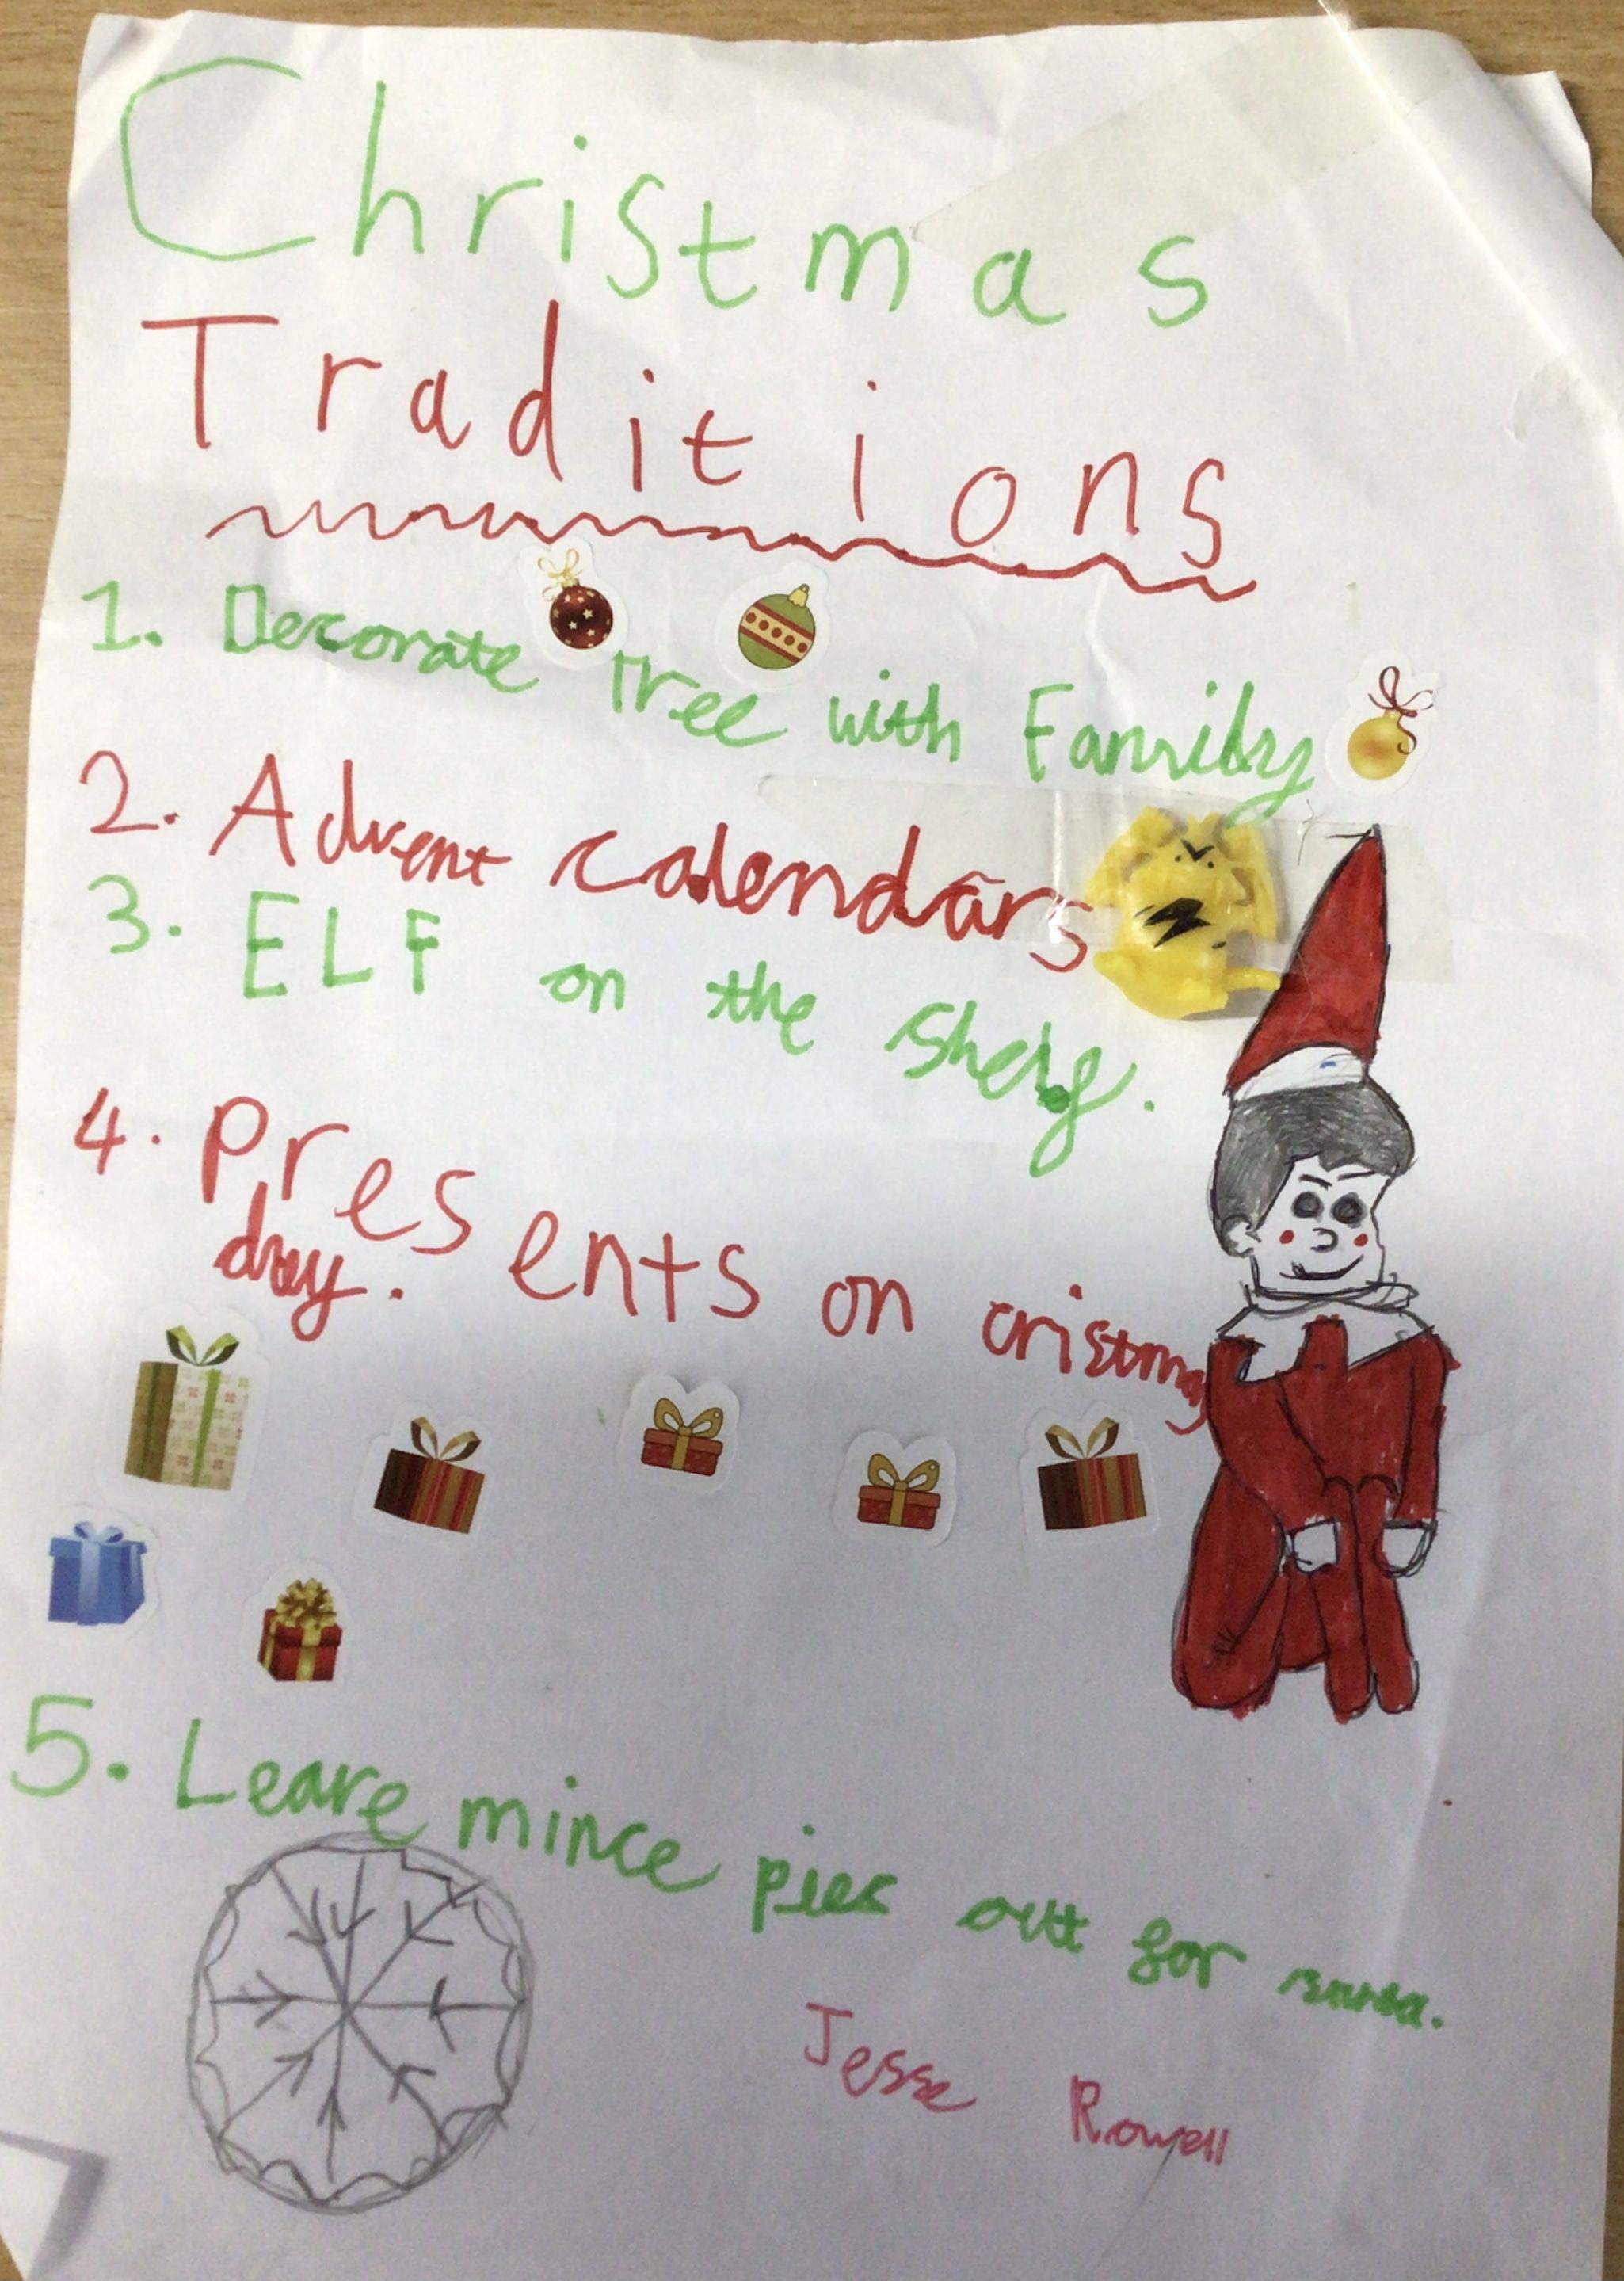 Christmas
Traditions
1. Decorate Tree with Family
2. Advent calendars
3. ELF on the Shelf.
4. Presents on cristmas
day.
5. Leave mince pies out for santa.
Jesse Rowell